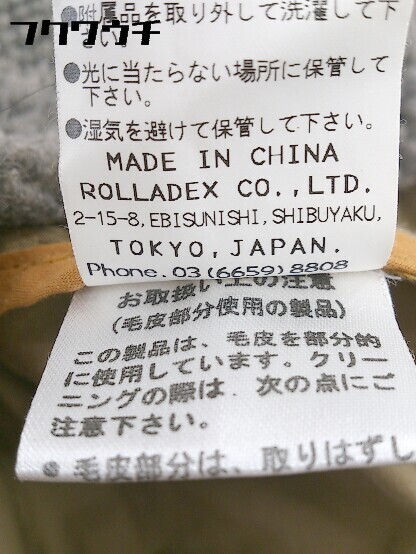 フクウウチ
●附属品を取り外して洗濯して下
さい。
●光に当たらない場所に保管して
下さい。
●湿気を避けて保管して下さい。
MADE IN CHINA
ROLLADEX CO.,LTD.
2-15-8, EBISUNISHI, SHIBUYAKU,
TOKYO, JAPAN.
Phone. 03 (6659) 8808
お取扱い上の注意
(毛皮部分使用の製品)
この製品は、毛皮を部分的
に使用しています。クリー
ニングの際は 次の点にご
注意下さい。
毛皮部分は、取りはずし